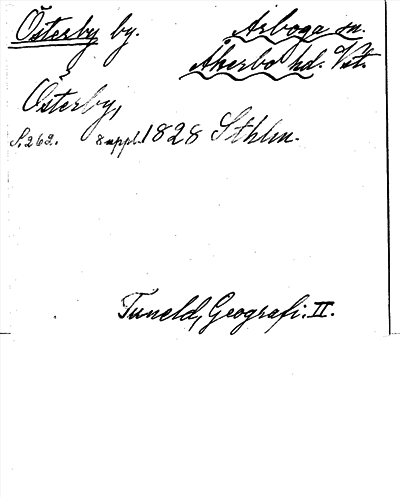 Österby by. Arboga sn.
Åkerbo hd. Vstm.
Österby,
S. 262. 8 uppl. 1828 Sthlm.
Tuneld, Geografi. II.